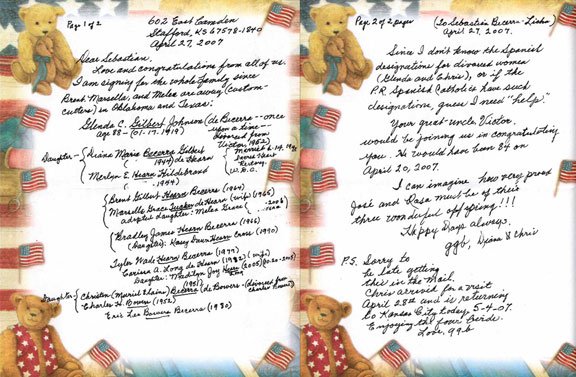 Page 1 of 2
602 East Camden
Stafford, KS 67578-1840
April 27, 2007
Dear Sebastian,
Love and congratulations from all of us.
I am signing for the whole family since
Brent, Marselle, and Melea are away (custom-
cutters) in Oklahoma and Texas:
Glenda C. Gilbert Johnson (de Becerra -- once
age 88 - (01.17.1919)
upon a time --
divorced from
Victor, 1952)
Daughter -
Diana Maria Becerra Gilbert
(1944) de Hearn
Merlyn E. Hearn Hildebrand
(1944)
Brent Gilbert Hearn Becerra (1964)
Marselle Grace Tucker de Hearn (wife) (1965)
adopted daughter: Melea Grace
Bradley James Hearn Becerra (1966)
(Daughter): Kasey Dawn Hearn (1990)
Tyler Wade Hearn Becerra (1977)
Carissa A. Long de Hearn (1982) (wife)
Daughter: Madilyn Joy Hearn (2005)
Daughter
Christen (Muriel Elaine) Becerra (de Bowers - (divorced from
Charles H. Bowers (1952)
Charles Bowers)
Eric Lee Bowers Becerra (1980)
Page 2 of 2 pages
(To Sebastián Becerra-Lisboa)
April 27, 2007.
Since I don't know the Spanish
designations for divorced women
(Glenda and Chris), or if the
P.R. Spanish Catholics have such
designations, guess I need "help."
Your great-uncle Victor
would be joining us in congratulating
you. He would have been 84 on
April 20, 2007.
I can imagine how very proud
José and Rosa must be of their
three wonderful offspring!!!
Happy Days always,
ggb, Diana & Chris
P.S. Sorry to
be late getting
this in the mail.
Chris arrived for a visit
April 28th and is returning
to Kansas City today, 5-4-07.
Enjoying the four birds.
Love, ggb